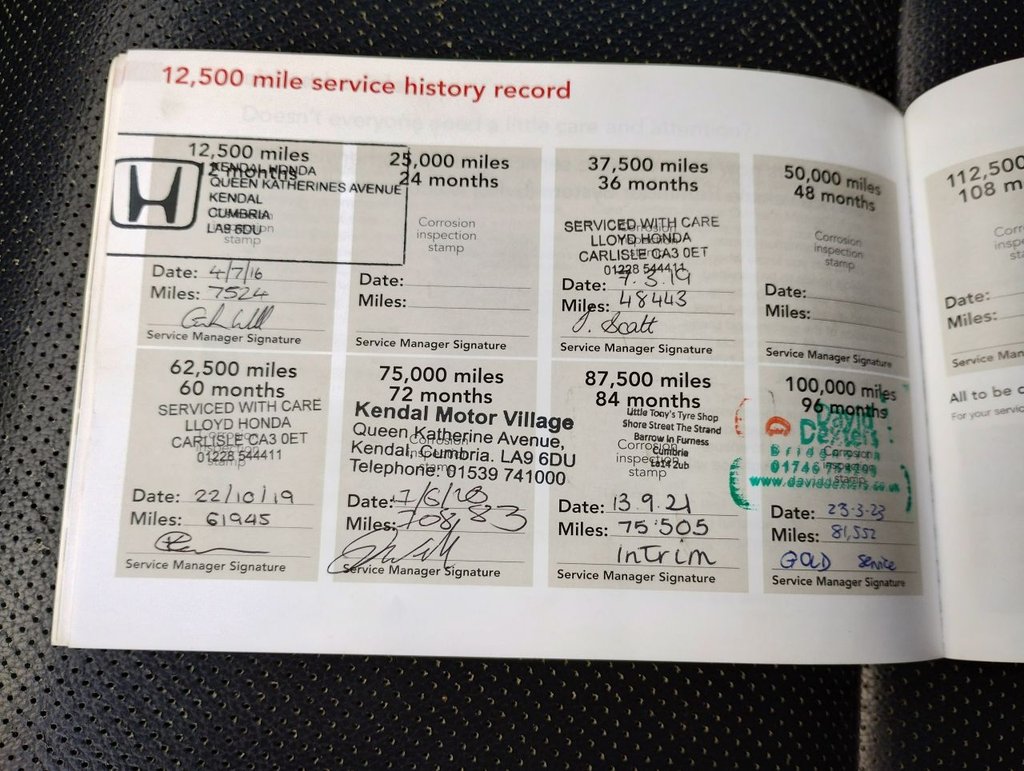 12,500 mile service history record
12,500 miles
12 months
KENDAL HONDA
QUEEN KATHERINES AVENUE
KENDAL
CUMBRIA
LA9 6DU
stamp
Date: 4/7/16
Miles: 7524
Service Manager Signature
25,000 miles
24 months
Corrosion
inspection
stamp
Date:
Miles:
Service Manager Signature
37,500 miles
36 months
SERVICED WITH CARE
LLOYD HONDA
CARLISLE CA3 0ET
01228 544411
Date: 7.3.19
Miles: 48443
J. Scott
Service Manager Signature
50,000 miles
48 months
Corrosion
inspection
stamp
Date:
Miles:
Service Manager Signature
62,500 miles
60 months
SERVICED WITH CARE
LLOYD HONDA
CARLISLE CA3 0ET
01228 544411
Date: 22/10/19
Miles: 61945
Service Manager Signature
75,000 miles
72 months
Kendal Motor Village
Queen Katherine Avenue,
Kendal, Cumbria. LA9 6DU
Telephone: 01539 741000
Date:
Miles:
Service Manager Signature
87,500 miles
84 months
Little Tony's Tyre Shop
Shore Street The Strand
Barrow in Furness
Cumbria
La14 2ub
Corrosion
inspection
stamp
Date: 13.9.21
Miles: 75505
Intrim
Service Manager Signature
100,000 miles
96 months
David
Dexters
Corrosion
01746
stamp
Date: 23-3-23
Miles: 81,552
GOLD Service
Service Manager Signature
112,500
108 m
Corr
insp
st
Date:
Miles:
Service Man
All to be c
For your servic